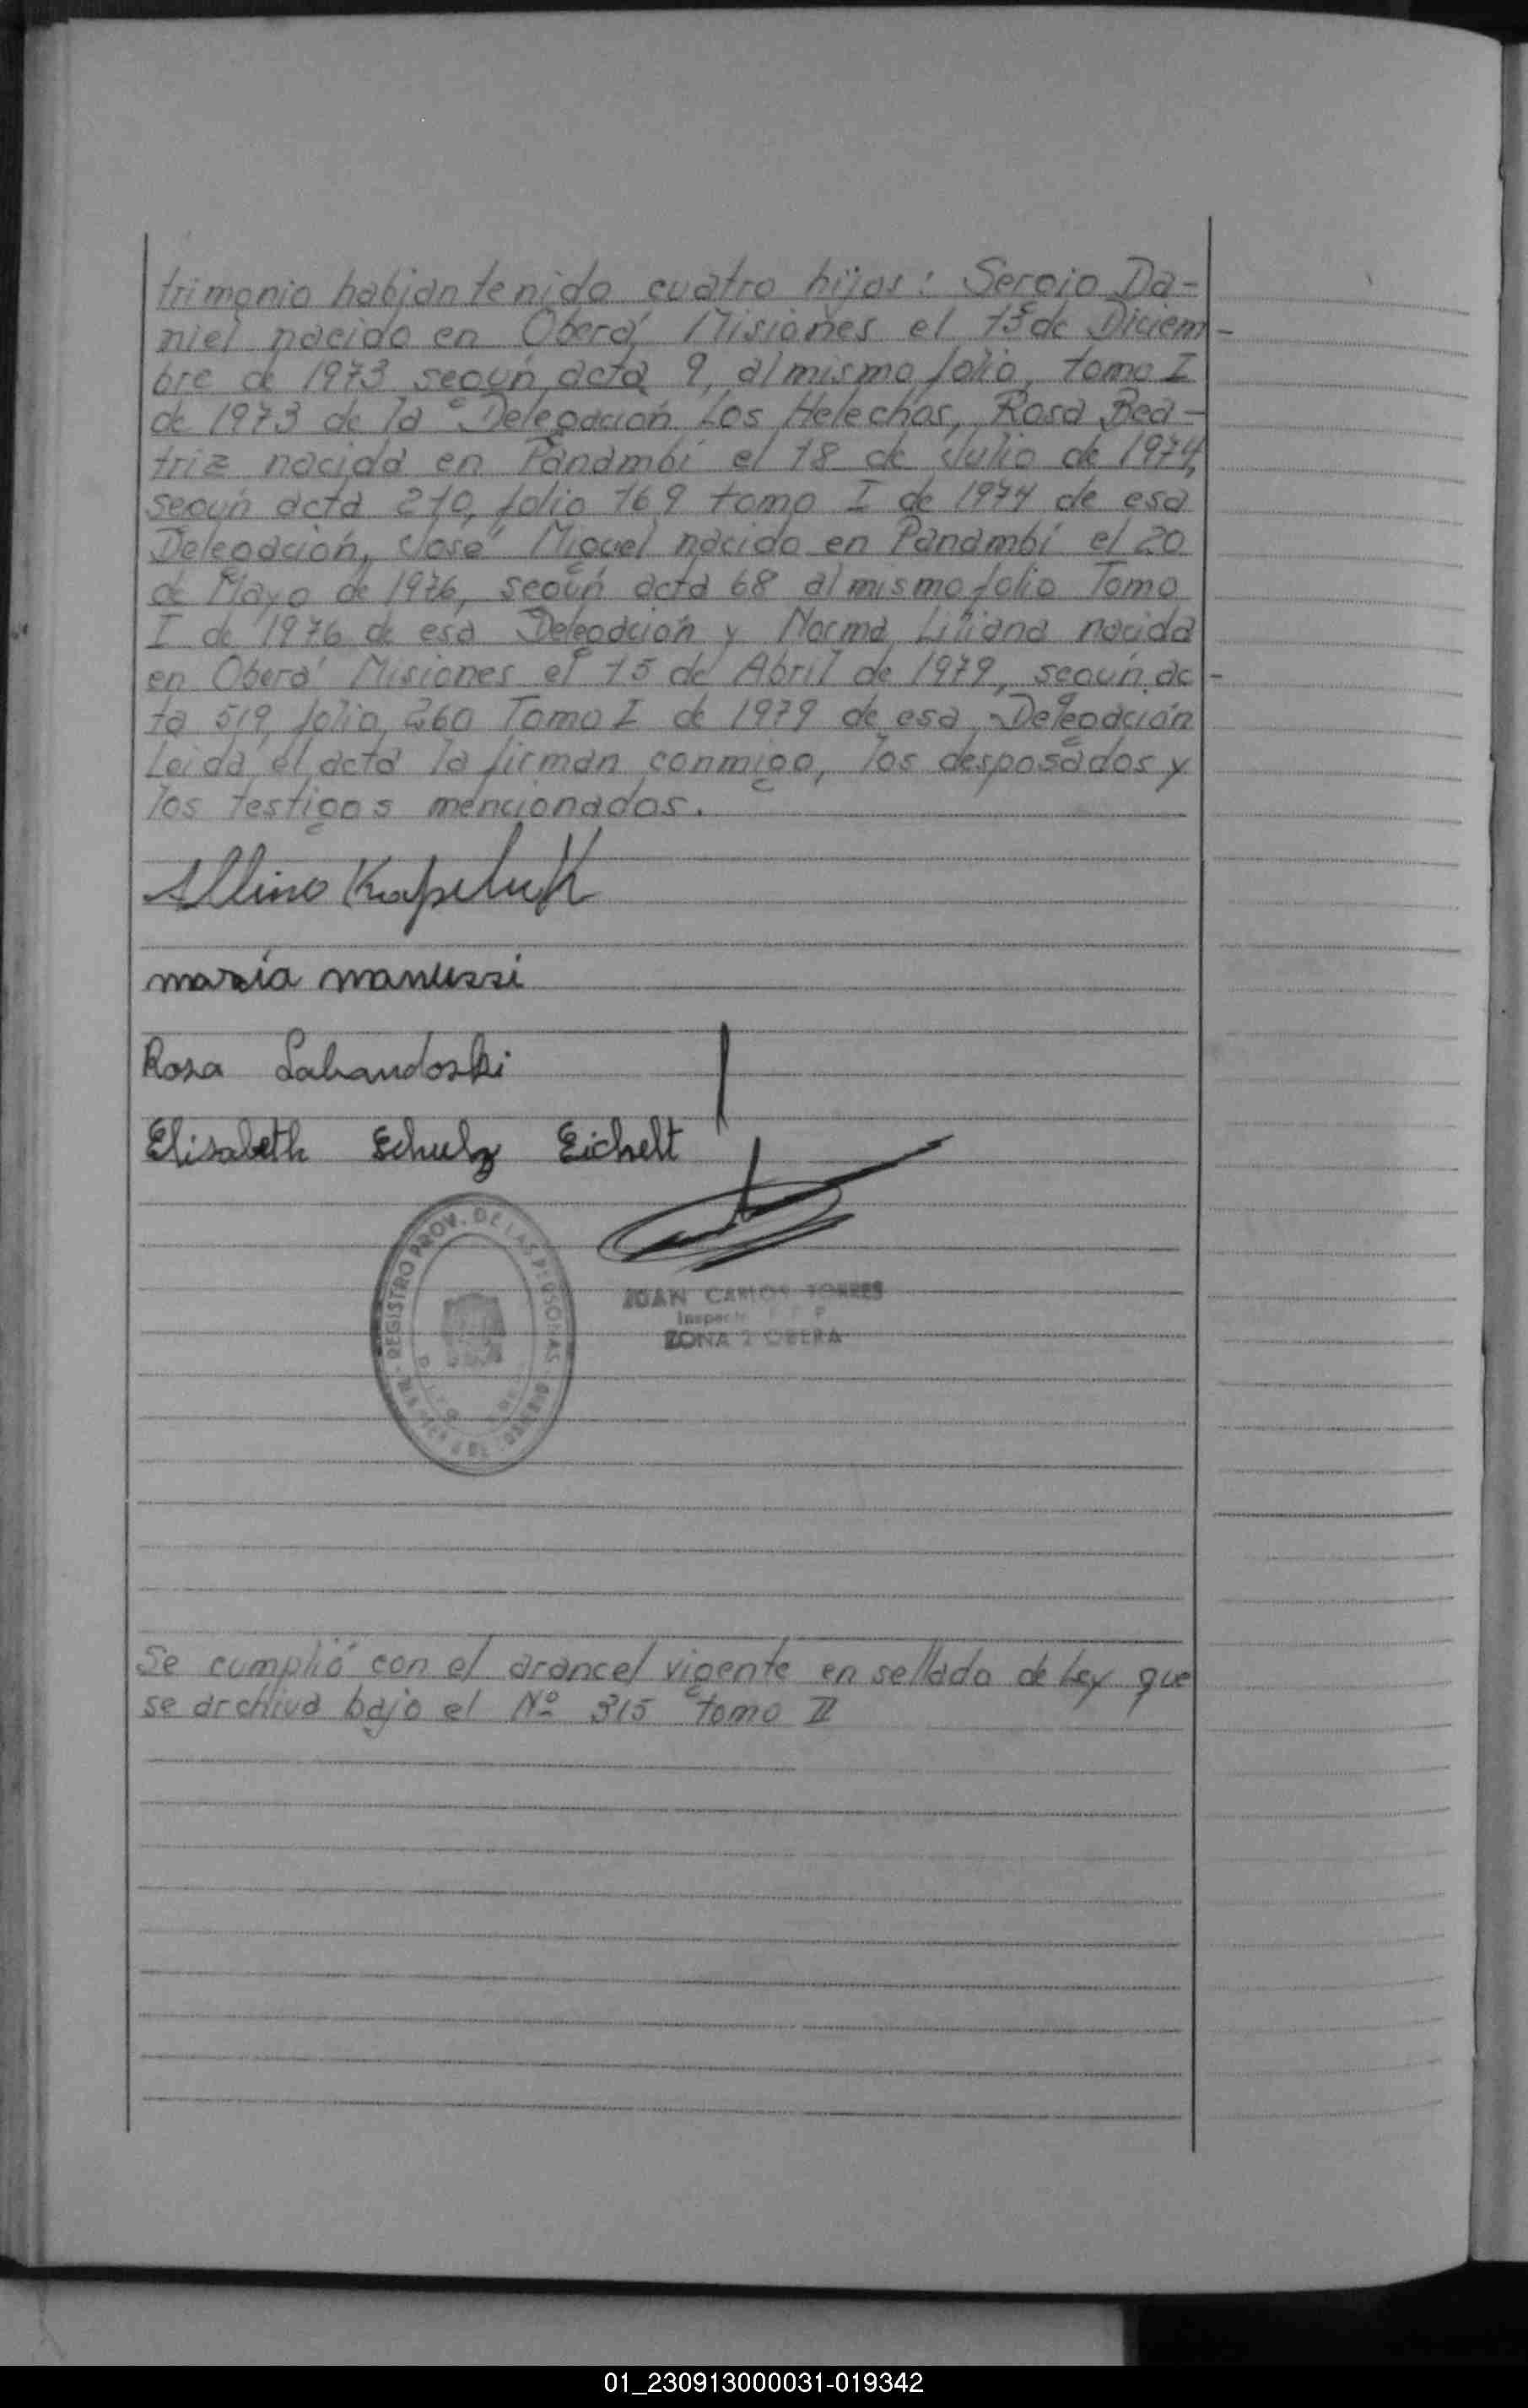 trimonio habian tenido cuatro hijos: Sergio Da-
niel nacido en Oberá, Misiones el 15 de Diciem-
bre de 1973 según acta 9, al mismo folio, tomo I
de 1973 de la Delegación Los Helechos, Rosa Bea-
triz nacida en Panambí el 18 de Julio de 1974,
según acta 210, folio 169 tomo I de 1974 de esa
Delegación, José Miguel nacido en Panambí el 20
de Mayo de 1976, según acta 68 al mismo folio Tomo
I de 1976 de esa Delegación y Norma Liliana nacida
en Oberá Misiones el 15 de Abril de 1979, según ac-
ta 519, folio 260 Tomo I de 1979 de esa Delegación
Leida el acta la firman conmigo, los desposados y
los testigos mencionados.
Allino Kapeluk
maria manussi
Rosa Labandoski
Elisabeth Schulz Eichelt
REGISTRO PROV. DE LAS PERSONAS
JUAN CARLOS TORRES
ZONA 2 OBERA
Se cumplió con el arancel vigente en sellado de Ley que
se archiva bajo el Nº 315 tomo II
01_230913000031-019342